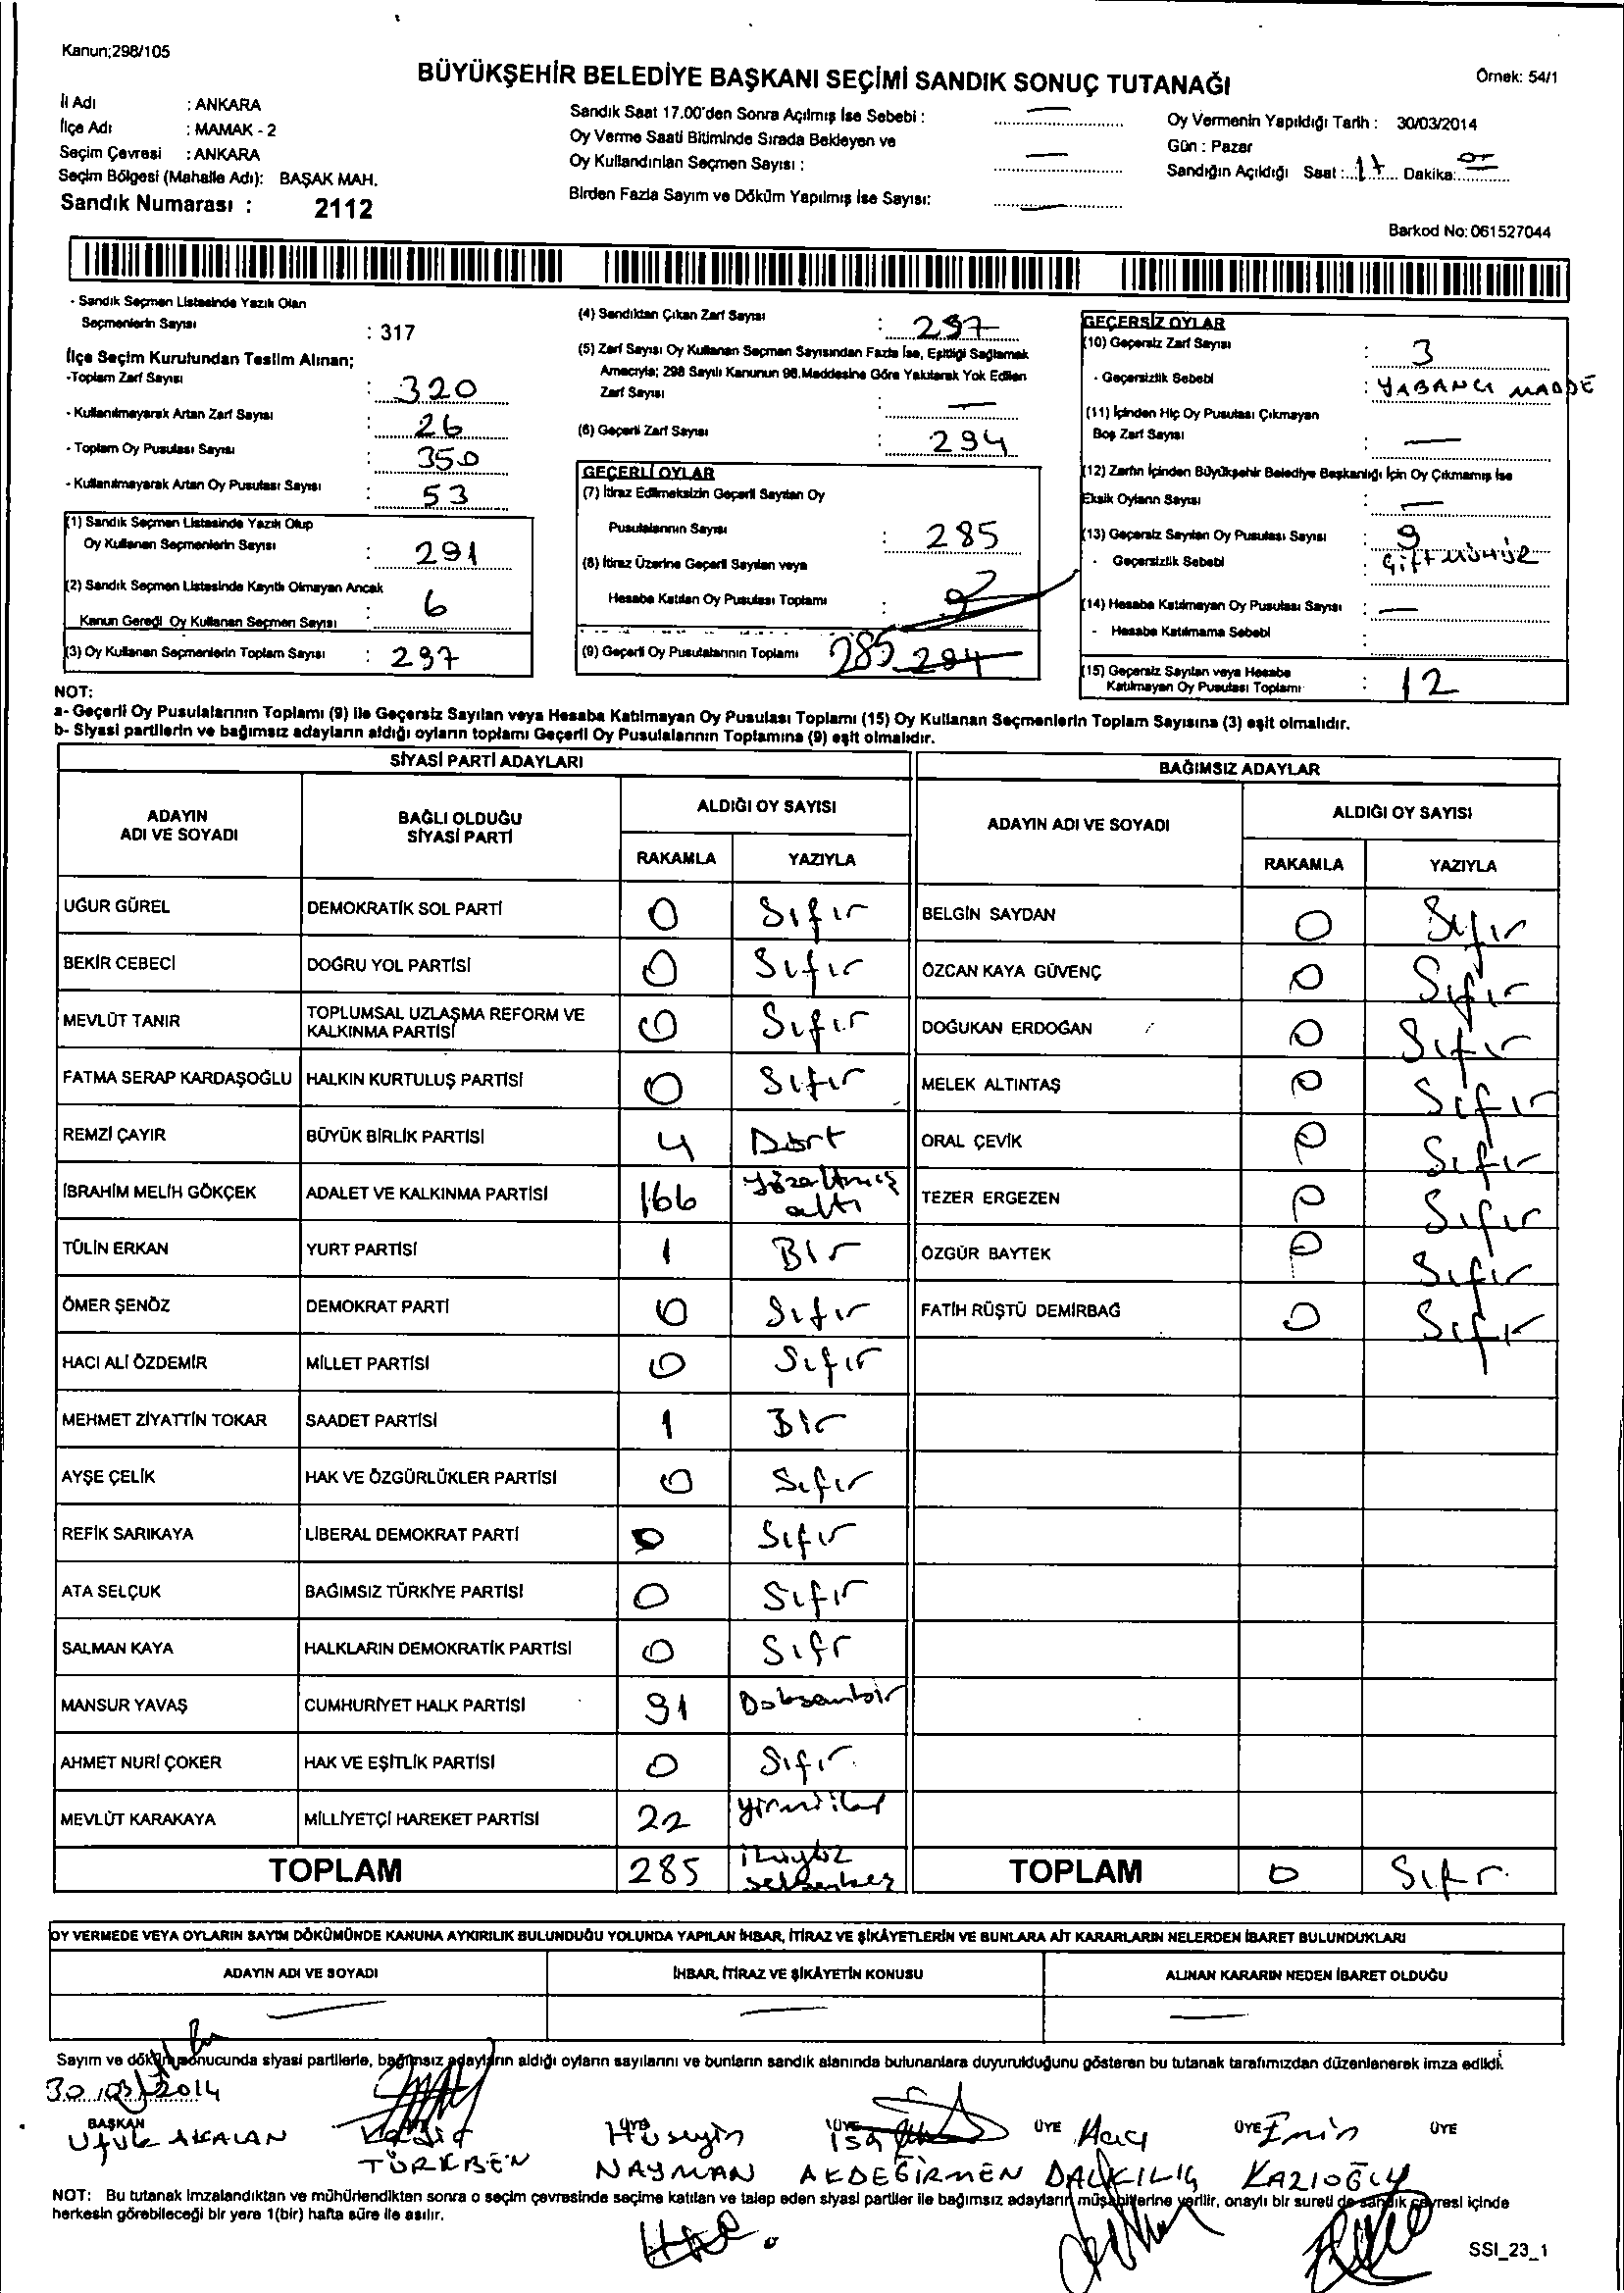 Kanun;298/105
BÜYÜKŞEHİR BELEDİYE BAŞKANI SEÇİMİ SANDIK SONUÇ TUTANAĞI
Örnek: 54/1
İl Adı : ANKARA
İlçe Adı : MAMAK - 2
Seçim Çevresi : ANKARA
Seçim Bölgesi (Mahalle Adı): BAŞAK MAH.
Sandık Numarası : 2112
Sandık Saat 17.00'den Sonra Açılmış İse Sebebi : —
Oy Verme Saati Bitiminde Sırada Bekleyen ve
Oy Kullandırılan Seçmen Sayısı : —
Birden Fazla Sayım ve Döküm Yapılmış İse Sayısı: —
Oy Vermenin Yapıldığı Tarih : 30/03/2014
Gün : Pazar
Sandığın Açıldığı Saat : 17 Dakika:
Barkod No: 061527044
- Sandık Seçmen Listesinde Yazılı Olan
Seçmenlerin Sayısı : 317
İlçe Seçim Kurulundan Teslim Alınan;
-Toplam Zarf Sayısı : 320
- Kullanılmayarak Artan Zarf Sayısı : 26
- Toplam Oy Pusulası Sayısı : 350
- Kullanılmayarak Artan Oy Pusulası Sayısı : 53
(1) Sandık Seçmen Listesinde Yazılı Olup
Oy Kullanan Seçmenlerin Sayısı : 291
(2) Sandık Seçmen Listesinde Kayıtlı Olmayan Ancak
Kanun Gereği Oy Kullanan Seçmen Sayısı : 6
(3) Oy Kullanan Seçmenlerin Toplam Sayısı : 297
(4) Sandıktan Çıkan Zarf Sayısı : 297
(5) Zarf Sayısı Oy Kullanan Seçmen Sayısından Fazla İse, Eşitliği Sağlamak
Amacıyla; 298 Sayılı Kanunun 98.Maddesine Göre Yakılarak Yok Edilen
Zarf Sayısı : —
(6) Geçerli Zarf Sayısı : 294
GEÇERLİ OYLAR
(7) İtiraz Edilmeksizin Geçerli Sayılan Oy
Pusulalarının Sayısı : 285
(8) İtiraz Üzerine Geçerli Sayılan veya
Hesaba Katılan Oy Pusulası Toplamı : 9
(9) Geçerli Oy Pusulalarının Toplamı 285 294
GEÇERSİZ OYLAR
(10) Geçersiz Zarf Sayısı : 3
- Geçersizlik Sebebi : YABANCI MADDE
(11) İçinden Hiç Oy Pusulası Çıkmayan
Boş Zarf Sayısı : —
(12) Zarfın İçinden Büyükşehir Belediye Başkanlığı İçin Oy Çıkmamış İse
Eksik Oyların Sayısı : —
(13) Geçersiz Sayılan Oy Pusulası Sayısı : 9
- Geçersizlik Sebebi : Çift MÜHÜR
(14) Hesaba Katılmayan Oy Pusulası Sayısı : —
- Hesaba Katılmama Sebebi :
(15) Geçersiz Sayılan veya Hesaba
Katılmayan Oy Pusulası Toplamı : 12
NOT:
a- Geçerli Oy Pusulalarının Toplamı (9) ile Geçersiz Sayılan veya Hesaba Katılmayan Oy Pusulası Toplamı (15) Oy Kullanan Seçmenlerin Toplam Sayısına (3) eşit olmalıdır.
b- Siyasi partilerin ve bağımsız adayların aldığı oyların toplamı Geçerli Oy Pusulalarının Toplamına (9) eşit olmalıdır.
SİYASİ PARTİ ADAYLARI
BAĞIMSIZ ADAYLAR
ADAYIN ADI VE SOYADI
BAĞLI OLDUĞU SİYASİ PARTİ
ALDIĞI OY SAYISI
RAKAMLA YAZIYLA
ADAYIN ADI VE SOYADI
ALDIĞI OY SAYISI
RAKAMLA YAZIYLA
UĞUR GÜREL DEMOKRATİK SOL PARTİ 0 Sıfır BELGİN SAYDAN 0 Sıfır
BEKİR CEBECİ DOĞRU YOL PARTİSİ 0 Sıfır ÖZCAN KAYA GÜVENÇ 0 Sıfır
MEVLÜT TANIR TOPLUMSAL UZLAŞMA REFORM VE KALKINMA PARTİSİ 0 Sıfır DOĞUKAN ERDOĞAN 0 Sıfır
FATMA SERAP KARDAŞOĞLU HALKIN KURTULUŞ PARTİSİ 0 Sıfır MELEK ALTINTAŞ 0 Sıfır
REMZİ ÇAYIR BÜYÜK BİRLİK PARTİSİ 4 Dört ORAL ÇEVİK 0 Sıfır
İBRAHİM MELİH GÖKÇEK ADALET VE KALKINMA PARTİSİ 166 Yüzaltmış altı TEZER ERGEZEN 0 Sıfır
TÜLİN ERKAN YURT PARTİSİ 1 Bir ÖZGÜR BAYTEK 0 Sıfır
ÖMER ŞENÖZ DEMOKRAT PARTİ 0 Sıfır FATİH RÜŞTÜ DEMİRBAĞ 0 Sıfır
HACI ALİ ÖZDEMİR MİLLET PARTİSİ 0 Sıfır
MEHMET ZİYATTİN TOKAR SAADET PARTİSİ 1 Bir
AYŞE ÇELİK HAK VE ÖZGÜRLÜKLER PARTİSİ 0 Sıfır
REFİK SARIKAYA LİBERAL DEMOKRAT PARTİ 0 Sıfır
ATA SELÇUK BAĞIMSIZ TÜRKİYE PARTİSİ 0 Sıfır
SALMAN KAYA HALKLARIN DEMOKRATİK PARTİSİ 0 Sıfr
MANSUR YAVAŞ CUMHURİYET HALK PARTİSİ 91 Doksanbir
AHMET NURİ ÇOKER HAK VE EŞİTLİK PARTİSİ 0 Sıfır
MEVLÜT KARAKAYA MİLLİYETÇİ HAREKET PARTİSİ 22 yirmiiki
TOPLAM 285 ikiyüz seksenbeş TOPLAM 0 Sıfr
OY VERMEDE VEYA OYLARIN SAYIM DÖKÜMÜNDE KANUNA AYKIRILIK BULUNDUĞU YOLUNDA YAPILAN İHBAR, İTİRAZ VE ŞİKÂYETLERİN VE BUNLARA AİT KARARLARIN NELERDEN İBARET BULUNDUKLARI
ADAYIN ADI VE SOYADI İHBAR, İTİRAZ VE ŞİKÂYETİN KONUSU ALINAN KARARIN NEDEN İBARET OLDUĞU
— — —
Sayım ve döküm sonucunda siyasi partilerle, bağımsız adayların aldığı oyların sayılarını ve bunların sandık alanında bulunanlara duyurulduğunu gösteren bu tutanak tarafımızdan düzenlenerek imza edildi.
30/03/2014
BAŞKAN ÜYE ÜYE ÜYE ÜYE ÜYE
Ufuk AKALAN Hüseyin İsa Hacı Emin
TÜRKBEN NAYMAN AKDEĞİRMEN DALKILIÇ KAZIOĞLU
NOT: Bu tutanak imzalandıktan ve mühürlendikten sonra o seçim çevresinde seçime katılan ve talep eden siyasi partiler ile bağımsız adayların müşahitlerine verilir, onaylı bir sureti de sandık çevresi içinde
herkesin görebileceği bir yere 1(bir) hafta süre ile asılır.
SSI_23_1